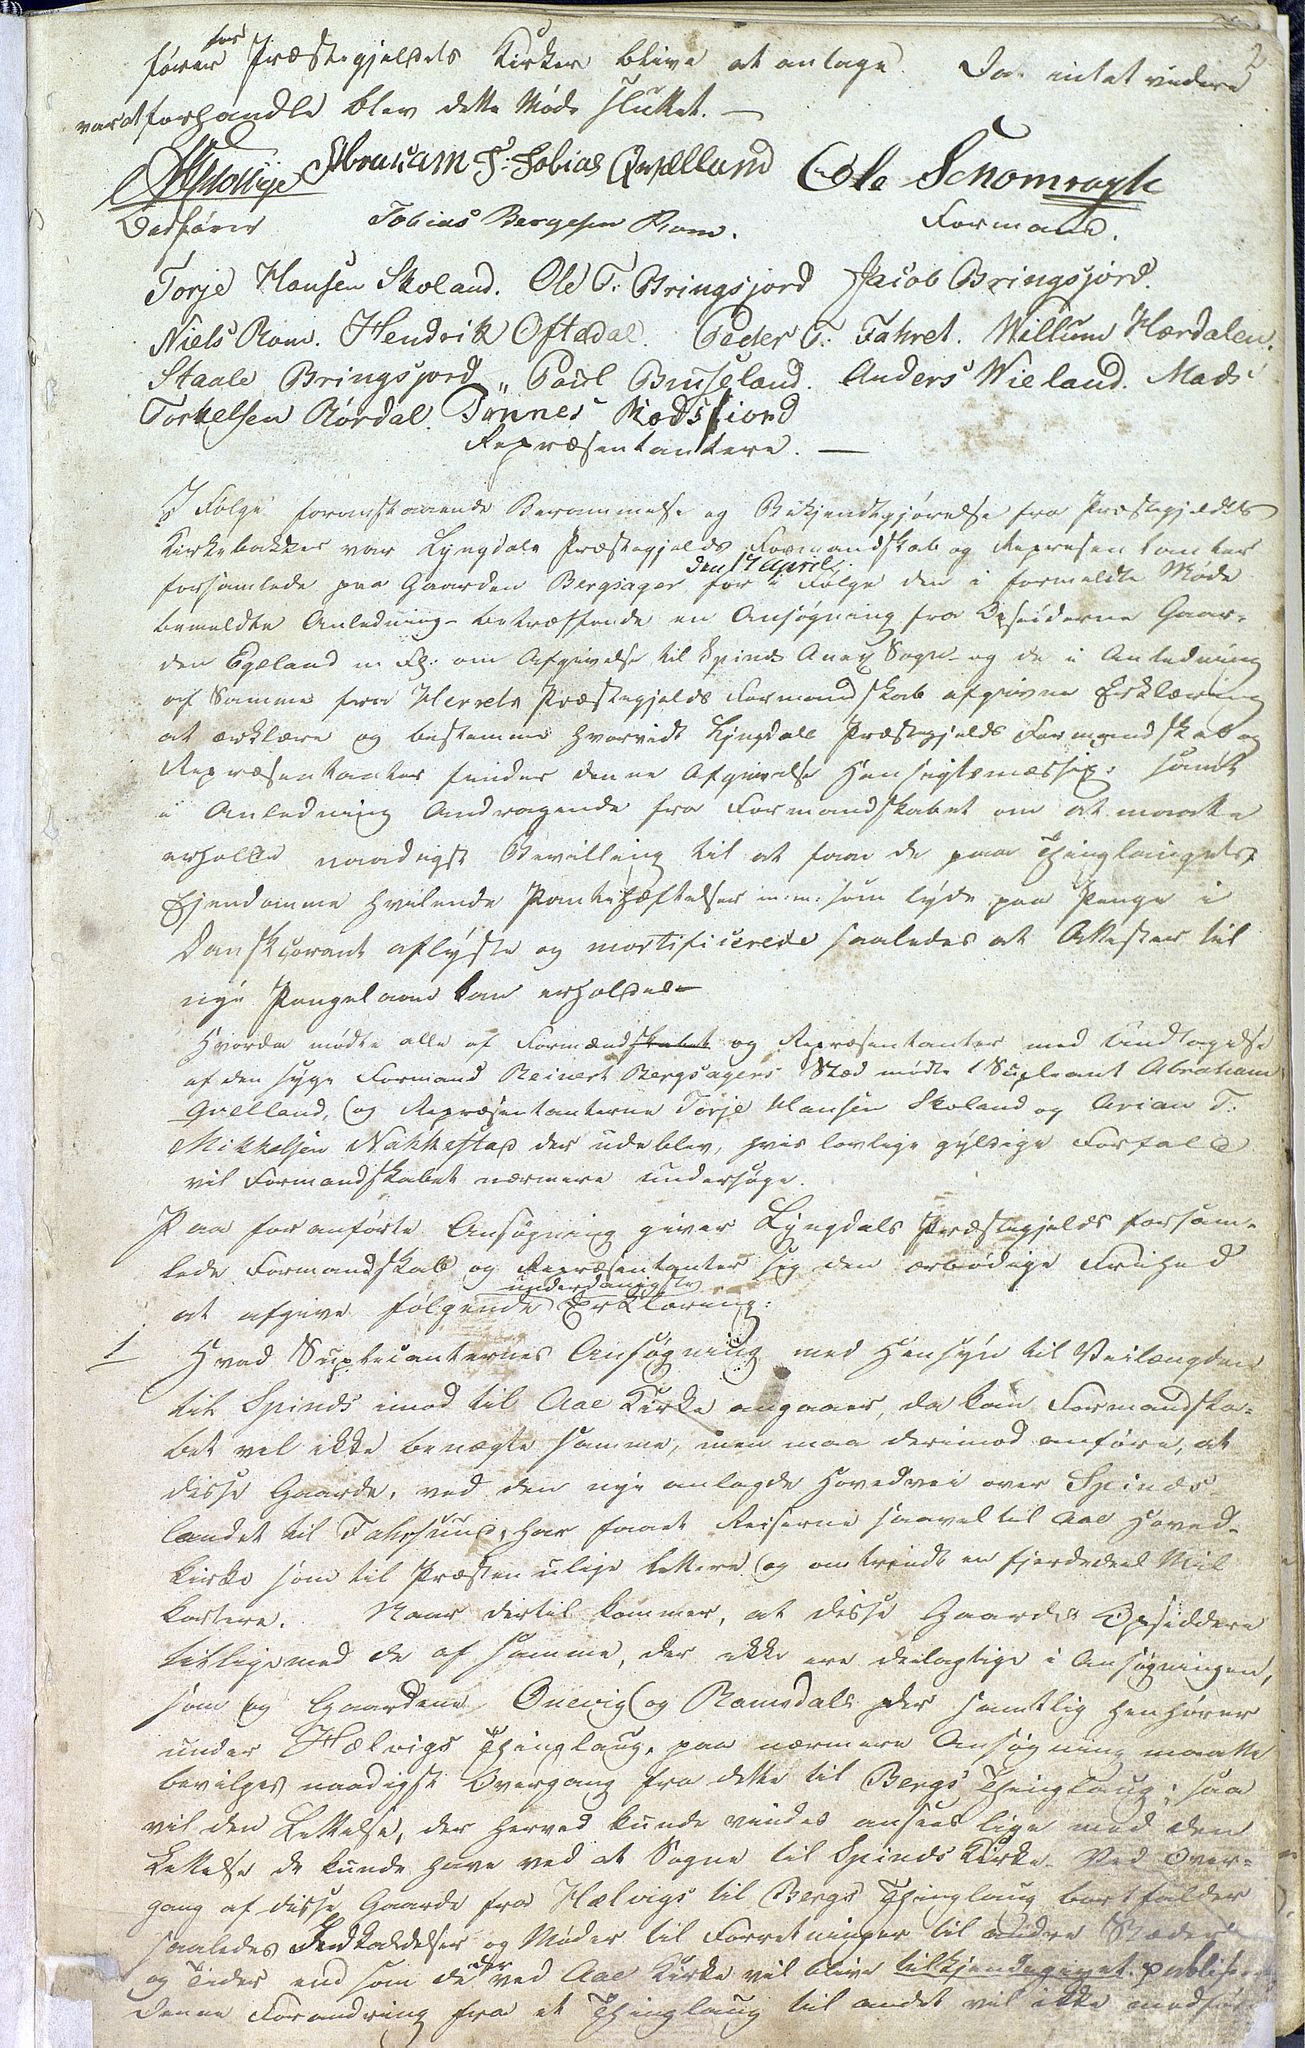 2
fører for Præstegjeldets Kirker blive at antage. Da intet videre
var at forhandle blev dette Møde sluttet. —
Abraham T. Tobias Qvælland Ole Schomragh
Ordfører Tobias Bergesen Rom. Formand.
Torje Hansen Skoland. Ole T. Bringsjord Jacob Bringsjord.
Niels Rom. Hendrik Oftedal. Peder T. Fahret. Willum Hærdalen.
Staale Bringsjord „ Poul Buseland. Anders Wieland. Mads
Torkelsen Rørdal. Tønnes Rødsfiord
Repræsentantere. —
I Følge foranstaaende Berammelse og Bekjendtgjørelse fra Præstegjeldets
Kirkebakker var Lyngdals Præstegjelds Formandskab og Represen tanter
forsamlede paa Gaarden Bergsager den 17 April for i Følge den i formeldte Møde
bemeldte Anledning betræffende en Ansøgning fra Opsidderne Gaar-
den Egeland m. Fl: om Afgivelse til Spinds Anex Sogn og de i Anledning
af Samme fra Herrets Præstegjelds Formandskab afgivne Erklæring
at erklære og bestemme hvorvidt Lyngdals Præstegjelds Formandskab og
Repræsentanter finder denne Afgivelse Hensigtsmæssig: samt
i Anledning Andragende fra Formandskabet om at maatte
erholde naadigst Bevilling til at faae de paa Thinglaugets
Ejendomme hvilende Pantehæftelser m: m: som lyde paa Penge i
Dansk Corant aflyste og mortificerede saaledes at Attester til
nye Pengelaane kan erholdes —
Hvorda mødte alle af Formændskabet og Repræsentanter med Undtagelse
af den syge Formand Reinert Bergsagers Sted mødte 1 Supleant Abraham
Qvelland, og Repræsentanterne Torje Hansen Skoland og Arian T:
Mikkelsen Nakkestad der udeblev, hvis lovlige gyldige Forfald
vil Formandskabet nærmere undersøge.
Paa foranførte Ansøgning giver Lyngdals Præstegjelds forsam-
lede Formandskab og Repræsentanter sig den ærbødige Frihed
at afgive følgende underdanigste Erklæring:
1 Hvad Suplicanternes Ansøgning med Hensyn til Veilængden
til Spinds imod til Aae Kirke angaaer, da kan Formandska-
bet vel ikke benægte samme, men maa derimod anføre, at
disse Gaarde, ved den nye anlagde Hovedvei over Spinds
landet til Fahrsund, har faaet Reiserne saavel til Aae Hoved-
kirke som til Præsten ulige lettere og omtrendt en fjerdedeel Miil
kortere. Naar dertil kommer, at disse Gaardes Opsiddere
tilligemed de af samme, der ikke ere deelagtige i Ansøgningen,
som og Gaardene Qvevig og Ramsdals der samtlig henhører
under Hælvigs Thinglaug, paa nærmere Ansøgning maatte
bevilges naadigst Overgang fra dette til Bergs Thinglaug; saa
vil den Lettelse, der herved kunde vindes ansees lige med den
Lettelse de kunde have ved at Sogne til Spinds Kirke. Ved Over-
gang af disse Gaarde fra Hælvigs til Bergs Thinglaug bortfalder
saaledes Indkaldelser og Møder til Forretninger til andre Stæder
og Tider end som de der ved Aae Kirke vil blive tilkjendegivet publiser
denne Forandring fra et Thinglaug til andet vil ikke medfør